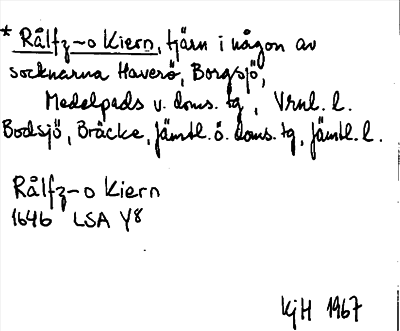 * Rålfz~o Kiern, tjärn i någon av
socknarna Haverö, Borgsjö,
Medelpads v. doms. tg, Vrnl. l.
Bodsjö, Bräcke, Jämtl. ö. doms. tg, Jämtl. l.
Rålfz~o Kiern
1646 LSA Y8
KjH 1967